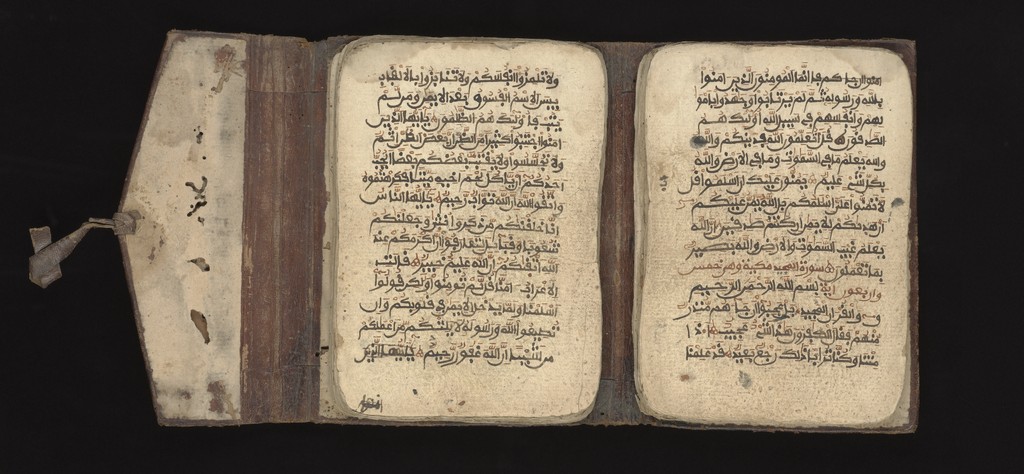 ولا تلمزوا انفسكم ولا تنابزوا بالالقب
بيس الاسم الفسوق بعد الايمن ومن لم
يتب فاوليك هم الظلمون يايها الذين
امنوا اجتنبوا كثيرا من الظن ان بعض الظن اثم
ولا تجسسوا ولا يغتب بعضكم بعضا ايحب
احدكم ان ياكل لحم اخيه ميتا فكرهتموه
واتقوا الله ان الله تواب رحيم يايها الناس
انا خلقنكم من ذكر وانثى وجعلنكم
شعوبا وقبايل لتعارفوا ان اكرمكم عند
الله اتقيكم ان الله عليم خبير قالت
الاعراب امنا قل لم تومنوا ولكن قولوا
اسلمنا ولما يدخل الايمن في قلوبكم وان
تطيعوا الله ورسوله لا يلتكم من اعملكم
من شييا ان الله غفور رحيم يايها الذين
امنوا
امنوا انما المومنون الذين امنوا
بالله ورسوله ثم لم يرتابوا وجهدوا باموا
لهم وانفسهم في سبيل الله اوليك هم
الصدقون قل اتعلمون الله بدينكم والله
والله يعلم ما في السموت وما في الارض والله
بكل شيء عليم يمنون عليك ان اسلموا قل
لا تمنوا علي اسلمكم بل الله يمن عليكم
ان هديكم للايمن ان كنتم صدقين ان الله
يعلم غيب السموت والارض والله بصير
بما تعملون سورة المجيد مكية وهي خمس
واربعون اية بسم الله الرحمن الرحيم
ق والقران المجيد بل عجبوا ان جاهم منذر
منهم فقال الكفرون هذا شيء عجيب اذا
متنا وكنا ترابا ذلك رجع بعيد قد علمنا